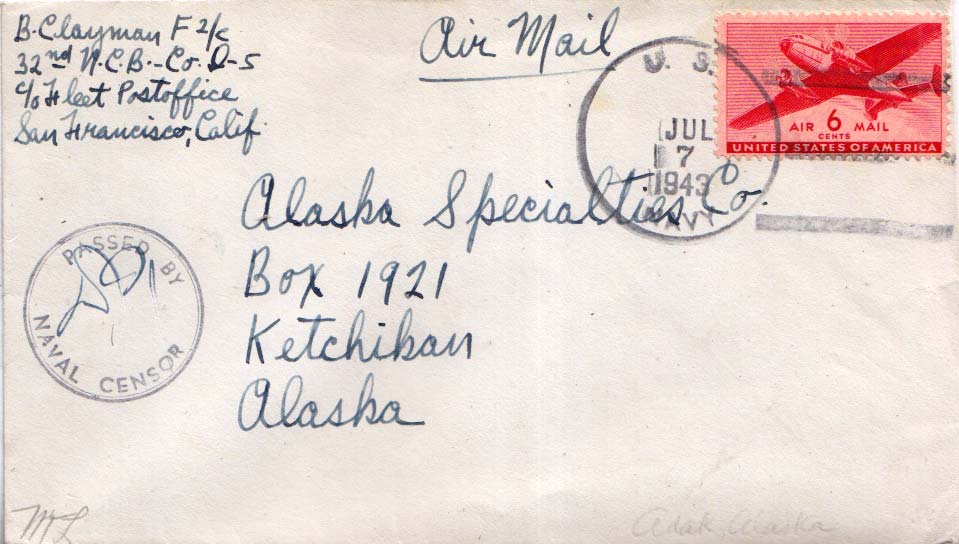 B. Clayman F 2/c
32nd N.C.B.-Co. D-5
c/o Fleet Postoffice
San Francisco, Calif.
Air Mail
U. S.
JUL
7
1943
NAVY
AIR 6 MAIL
CENTS
UNITED STATES OF AMERICA
Alaska Specialties Co.
Box 1921
Ketchikan
Alaska
PASSED BY
NAVAL CENSOR
Adak, Alaska